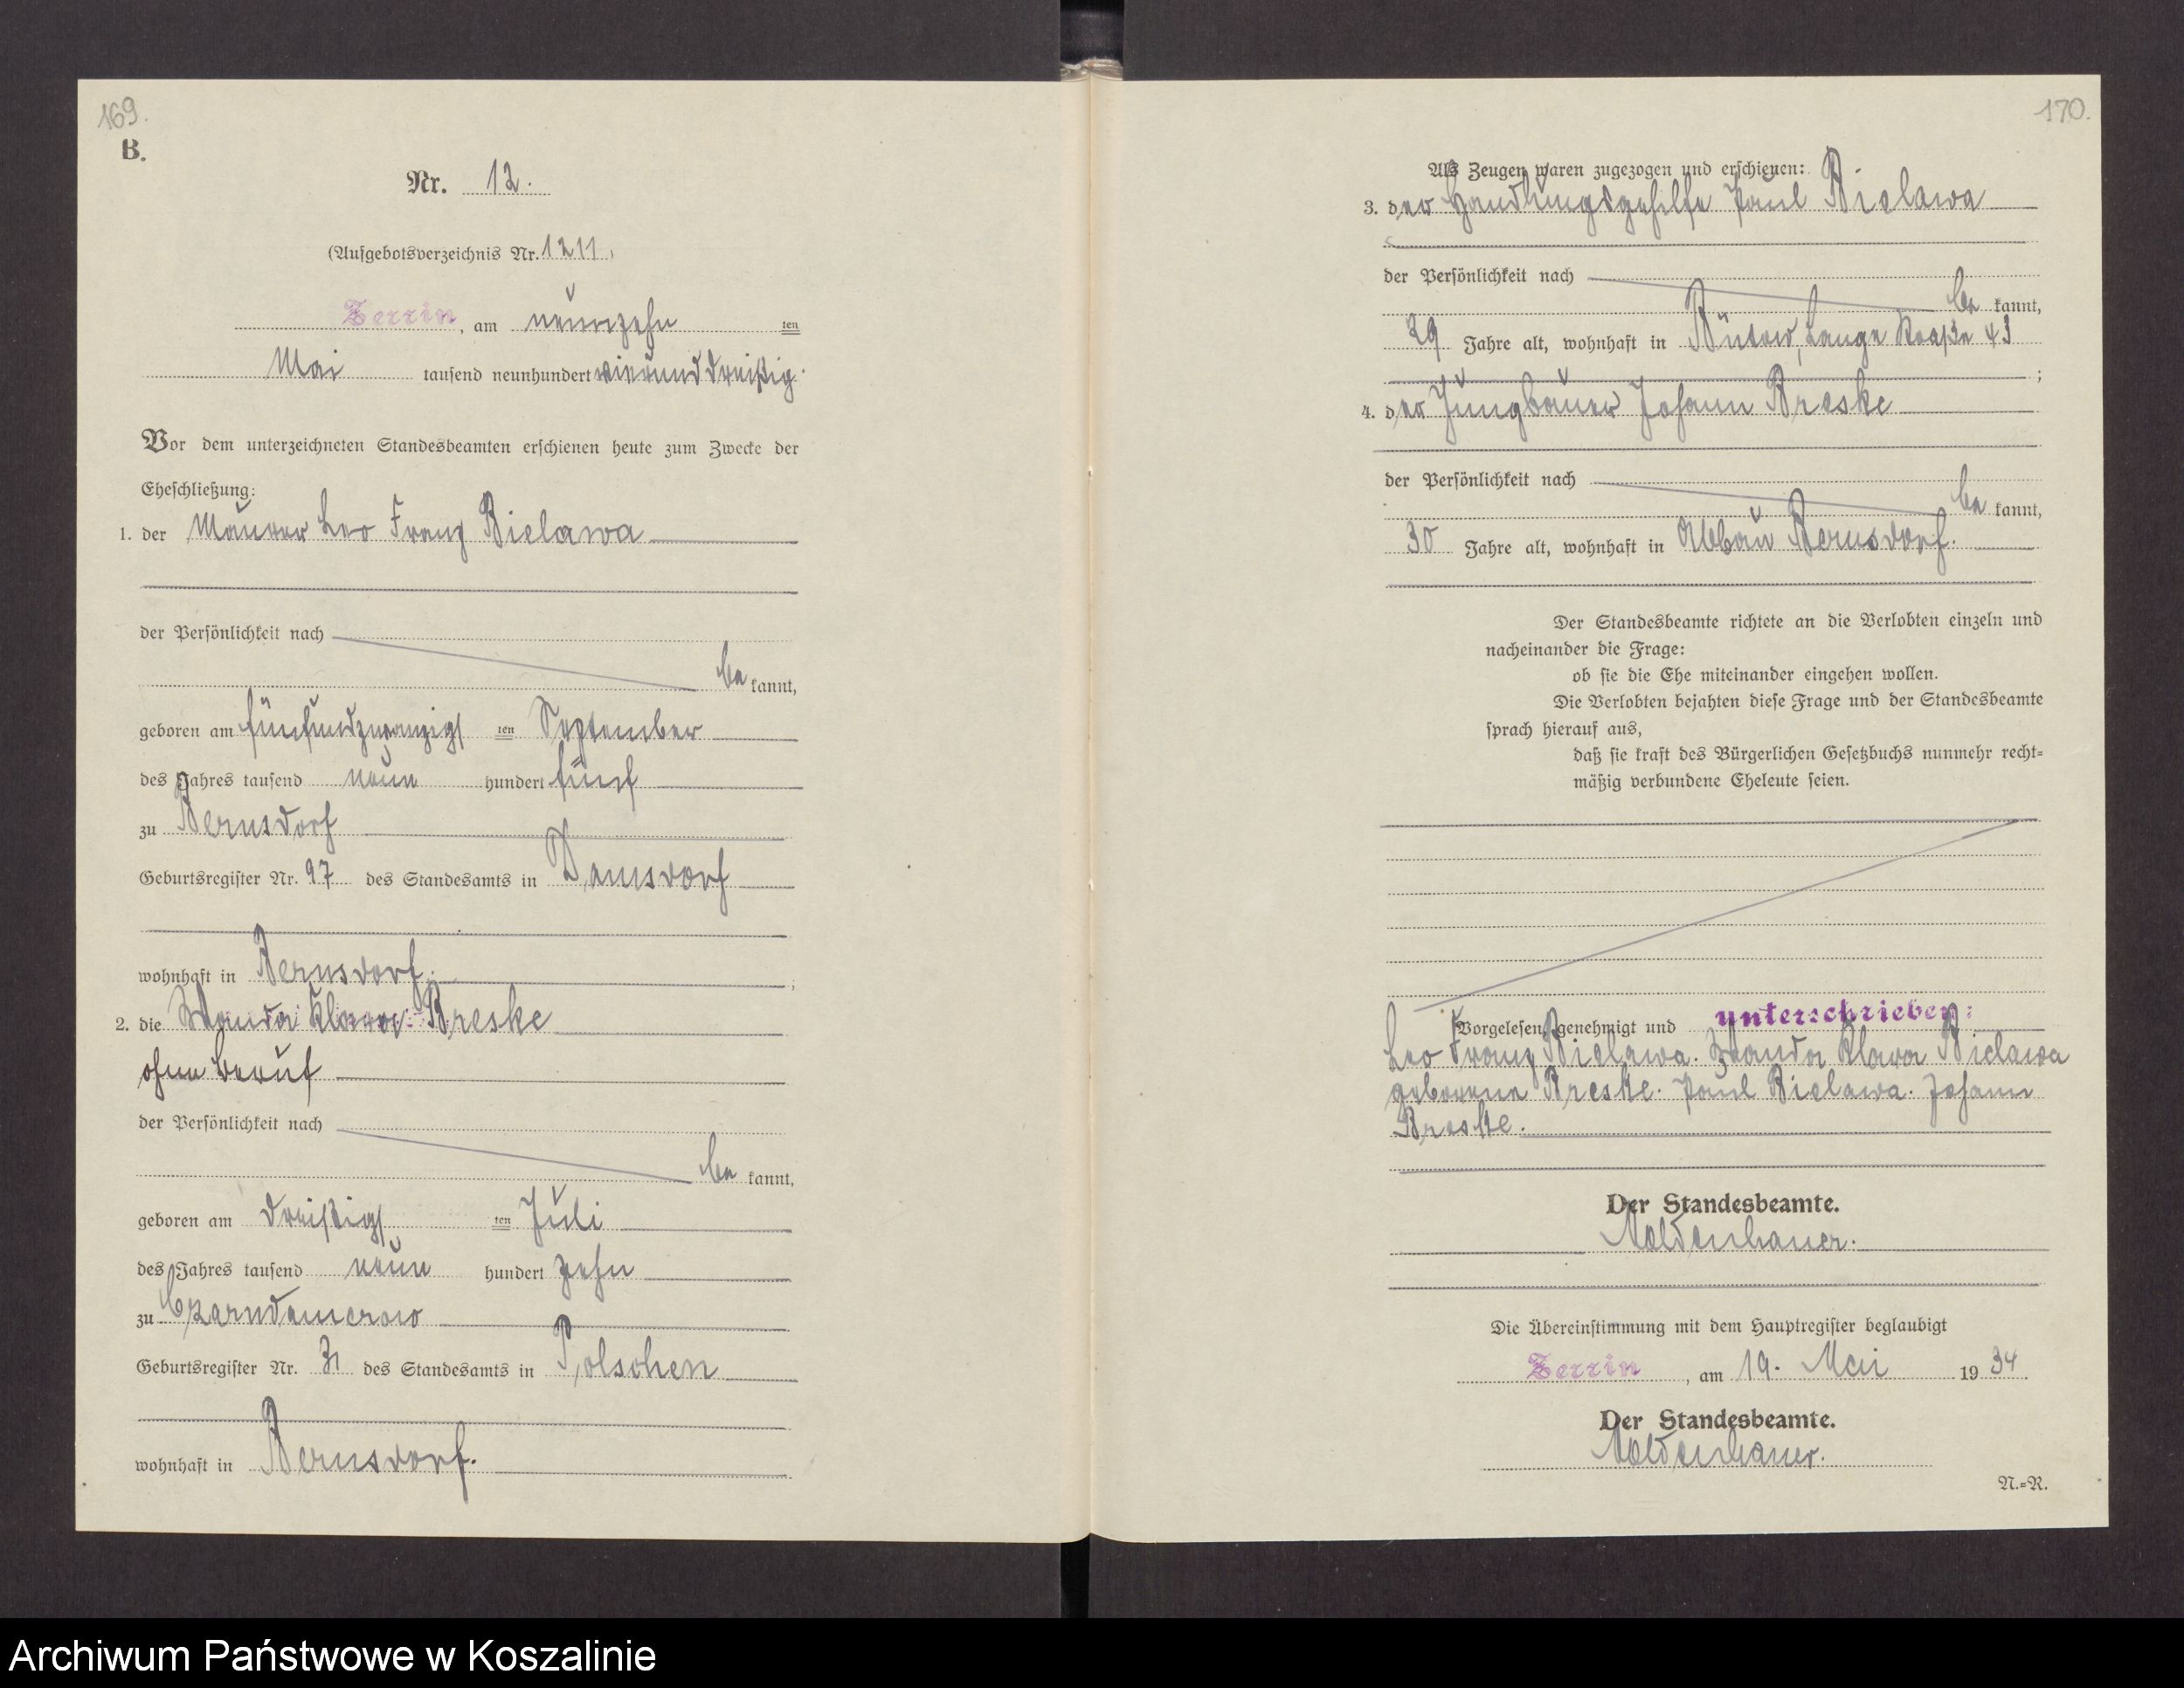 169.
B.
Nr. 12.
(Aufgebotsverzeichnis Nr. 12 11)
Zerrin, am neunzehn ten
Mai tausend neunhundert vierunddreißig.
Vor dem unterzeichneten Standesbeamten erschienen heute zum Zwecke der
Eheschließung:
1. der Maurer Leo Franz Bielawa
der Persönlichkeit nach
be kannt,
geboren am fünfundzwanzigs ten September
des Jahres tausend neun hundert fünf
zu Bernsdorf
Geburtsregister Nr. 97 des Standesamts in Damsdorf
wohnhaft in Bernsdorf. ;
2. die Wanda Klara Breske
ohne Beruf
der Persönlichkeit nach
be kannt,
geboren am dreißigs ten Juli
des Jahres tausend neun hundert zehn
zu Czarndamerow
Geburtsregister Nr. des Standesamts in Polschen
wohnhaft in Bernsdorf.
170.
Als Zeugen waren zugezogen und erschienen:
3. der Handlungsgehilfe Paul Bielawa
der Persönlichkeit nach
be kannt,
29 Jahre alt, wohnhaft in Bütow, Lange 43
;
4. der Jungbauer Johann Breske
der Persönlichkeit nach
be kannt,
30 Jahre alt, wohnhaft in Abbau Bernsdorf.
Der Standesbeamte richtete an die Verlobten einzeln und
nacheinander die Frage:
ob sie die Ehe miteinander eingehen wollen.
Die Verlobten bejahten diese Frage und der Standesbeamte
sprach hierauf aus,
daß sie kraft des Bürgerlichen Gesetzbuchs nunmehr recht-
mäßig verbundene Eheleute seien.
Vorgelesen, genehmigt und unterschrieben:
Leo Franz Bielawa. Wanda Klara Bielawa
geborene Breske. Paul Bielawa. Johann
Breske.
Der Standesbeamte.
Moldenhauer.
Die Übereinstimmung mit dem Hauptregister beglaubigt
Zerrin, am 19. Mai 19 34
Der Standesbeamte.
Moldenhauer.
N.-R.
Archiwum Państwowe w Koszalinie